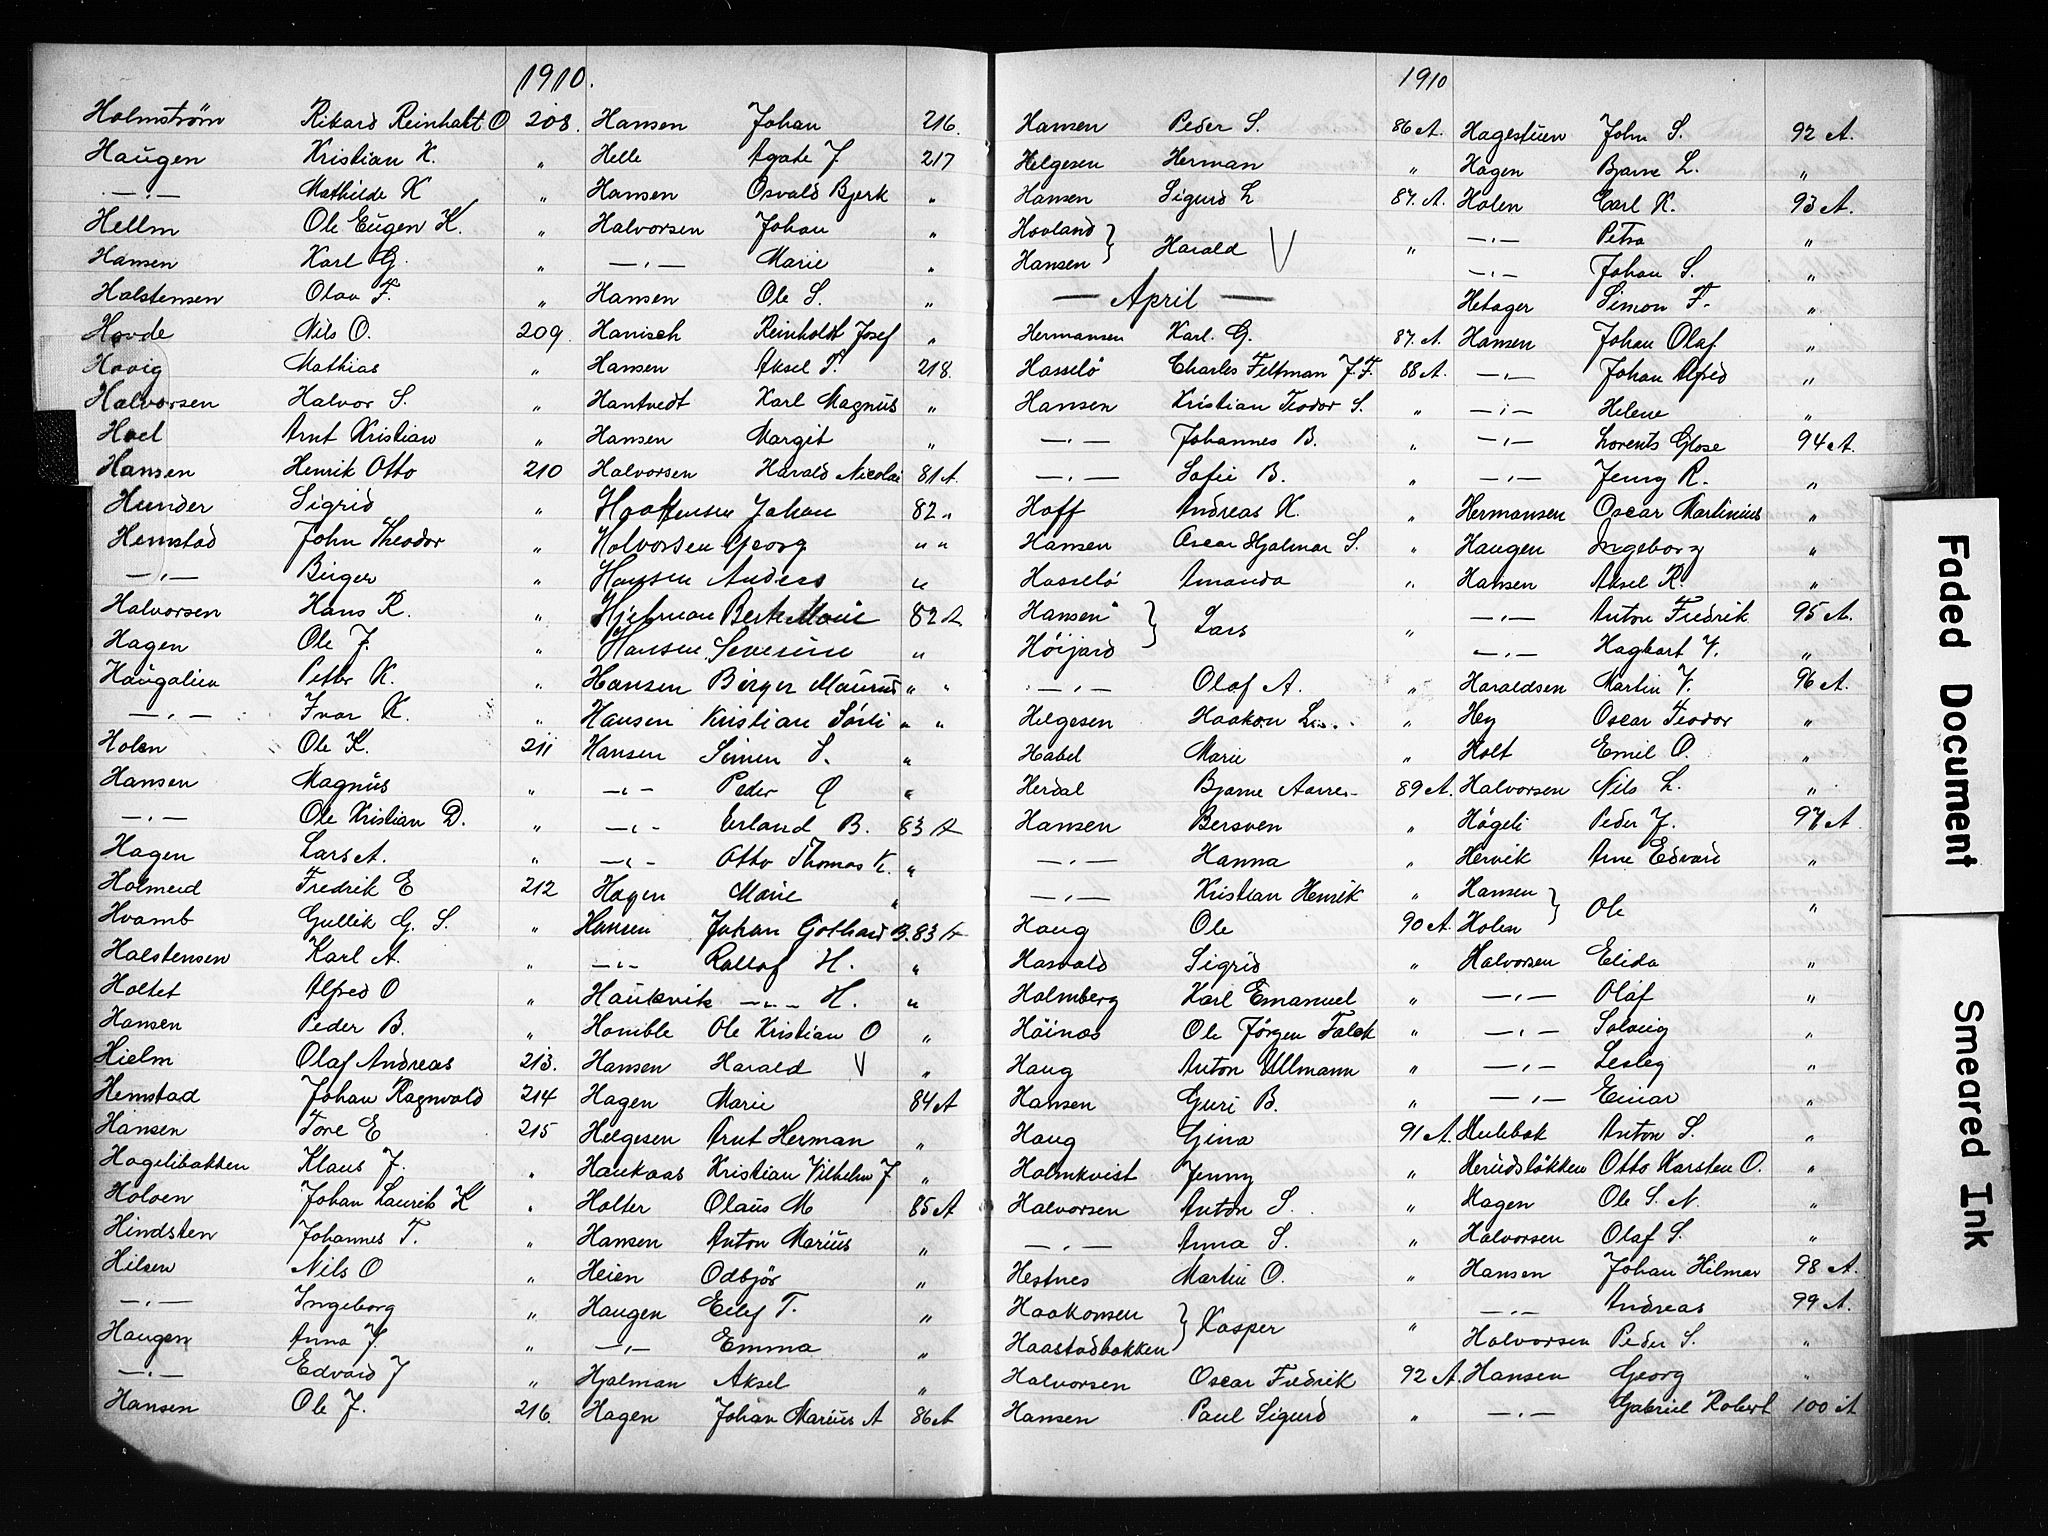 1910.
Holmström Rikard Reinhalt O 208.
Haugen Kristian K. "
—"— Mathilde K "
Hellm Ole Eugen K. "
Hansen Karl G. "
Halstensen Olav F. "
Hovde Nils O. 209.
Hovig Mathias "
Halvorsen Halvor S. "
Hoel Arnt Kristian "
Hansen Henrik Otto 210
Hunder Sigrid "
Hemstad John Theodor "
—"— Birger "
Halvorsen Hans R. "
Hagen Ole J. "
Haugalien Petter K. "
—"— Ivar K. "
Holen Ole K. 211
Hansen Magnus "
—"— Ole Kristian D. "
Hagen Lars A. "
Holmeid Fredrik E 212
Hvamb Gullik G. S. "
Halstensen Karl A. "
Holtet Alfred O "
Hansen Peder B. "
Hielm Olaf Andreas 213.
Hemstad Johan Ragnvald 214
Hansen Tore E 215
Hagelibakken Klaus J. "
Holven Johan Laurits K "
Hindsten Johannes T. "
Hilsen Nils O "
—"— Ingeborg "
Haugen Anna J. "
—"— Edvard J "
Hansen Ole J. 216.
Hansen Johan 216.
Helle Agate J 217
Hansen Osvald Bjerk "
Halvorsen Johan "
—"— Marie "
Hansen Ole S. "
Hanisch Reinholdt Josef "
Hansen Aksel F. 218.
Hantvedt Karl Magnus "
Hansen Margit "
Halvorsen Harald Nicolai 81 A.
Haakensen Johan 82 "
Halvorsen Georg " "
Hansen Anders "
Hjelman Berthe Marie 82 A
Hansen Severine "
Hansen Birger Maurus " "
Hansen Kristian Sörli " "
Hansen Simen S. "
—"— Peder O "
—"— Erland B. 83 A
—"— Otto Thomas K. "
Hagen Marie "
Hansen Johan Gothard B. 83 A
—"— Rollof H. "
Haukvik —"— H. "
Homble Ole Kristian O "
Hansen Harald V "
Hagen Marie 84 A
Helgesen Arnt Herman "
Haukaas Kristian Vilhelm J "
Holter Olaus M 85 A
Hansen Anton Marius "
Heien Odbjör "
Haugen Eilif T. "
—"— Emma "
Hjalman Aksel "
Hagen Johan Marius A 86 A
1910
Hansen Peder S. 86 A.
Helgesen Herman "
Hansen Sigurd L 87. A.
Hovland
Hansen } Harald V "
— April —
Hermansen Karl. G. 87. A.
Hasselö Charles Feltman J. F. 88 A.
Hansen Kristian Teodor S. "
—"— Johannes B. "
—"— Sofie B. "
Hoff Andreas K. "
Hansen Oscar Hjalmar S. "
Hasselö Amanda "
Hansen
Höijord } Lars "
—"— Olaf A. "
Helgesen Haakon L. "
Habel Marie "
Herdal Bjarne Aarre- 89 A.
Hansen Bersven "
—"— Hanna "
—"— Kristian Henrik "
Haug Ole 90 A.
Hasvold Sigrid "
Holmberg Karl Emanuel "
Höinæs Ole Jörgen Falck "
Haug Anton Ullmann "
Hansen Guri B. "
Haug Gina 91 A.
Holmkvist Jenny "
Halvorsen Anton S. "
—"— Anna S. "
Hestnes Martin O. "
Haakonsen
Haastadbakken } Kasper "
Halvorsen Oscar Fredrik 92 A.
Hansen Paul Sigurd "
Hagestuen John S. 92 A.
Hagen Bjarne L. "
Holen Carl K. 93 A.
—"— Petra "
—"— Johan S. "
Hetager Simon F. "
Hansen Johan Olaf "
—"— Johan Alfred "
—"— Helene "
—"— Lorents Gjose 94 A.
—"— Jenny R. "
Hermansen Oscar Martinius "
Haugen Ingeborg "
Hansen Aksel R. "
—"— Anton Fredrik 95 A.
—"— Hagbart V. "
Haraldsen Martin V. 96 A.
Hey Oscar Teodor "
Holt Emil O. "
Halvorsen Nils L. "
Högeli Peder J. 97 A.
Hervik Arne Edvard "
Hansen
Holen } Ole "
Halvorsen Elida "
—"— Olaf "
—"— Solveig "
—"— Lesleg "
—"— Einar "
Hulebak Anton S. "
Herudslökken Otto Karsten O. "
Hagen Ole S. N. "
Halvorsen Olaf S. "
Hansen Johan Hilmar 98 A.
—"— Andreas 99 A.
Halvorsen Peder S. "
Hansen Georg "
—"— Gabriel Robert 100 A
Faded Document
Smeared Ink